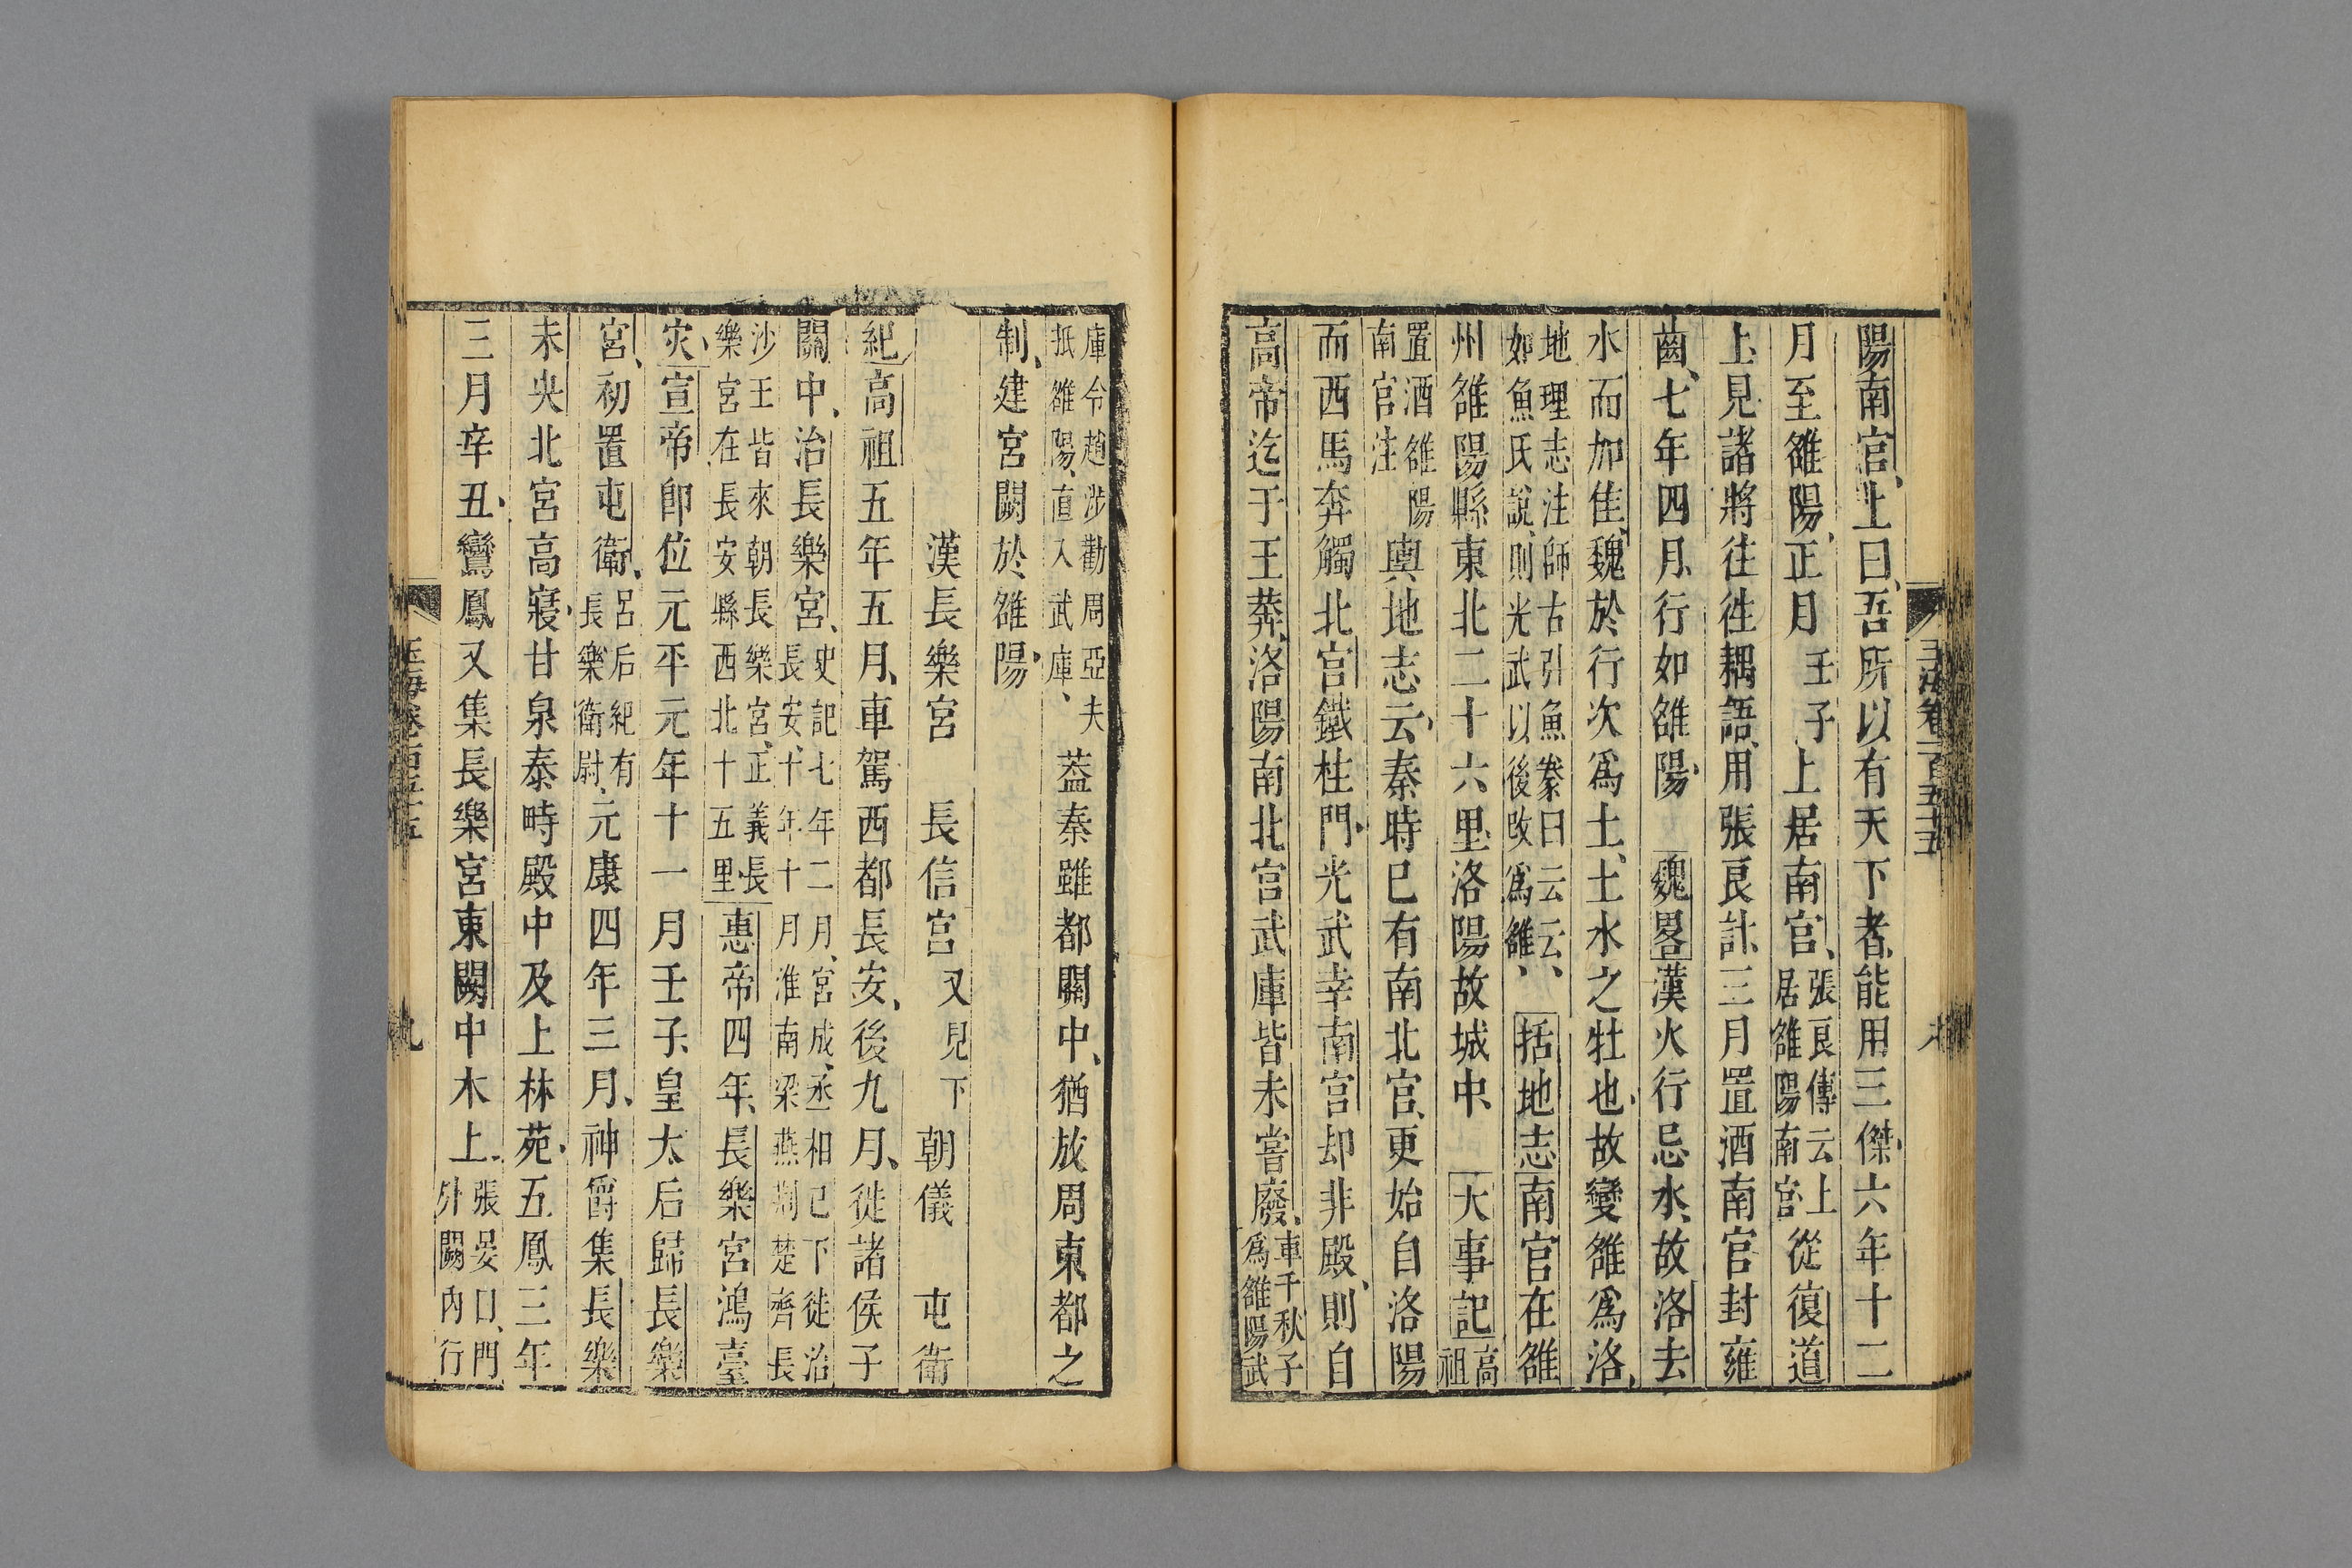 陽南宫上曰吾所以有天下者能用三傑六年十二
月至雒陽正月壬子上居南宫張良傳云上居雒陽南宮從復道
上見諸將往往耦語用張良計三月置酒南宫封雍
齒七年四月行如雒陽魏畧漢火行忌水故洛去
水而加隹魏於行次爲土土水之牡也故變雒爲洛
地理志注師古引魚豢曰云云如魚氏說則光武以後改爲雒括地志南宫在雒
州雒陽縣東北二十六里洛陽故城中大事記高祖
置酒雒陽南宫注輿地志云秦時已有南北宫更始自洛陽
而西馬奔觸北宫鐵柱門光武幸南宫却非殿則自
高帝迄于王莽洛陽南北宫武庫皆未嘗廢車千秋子爲雒陽武
玉海卷一百五十五
庫令趙涉勸周亞夫抵雒陽直入武庫葢秦雖都關中猶放周東都之
制建宮闕於雒陽
漢長樂宮 長信宫又見下 朝儀 屯衛
紀高祖五年五月車駕西都長安後九月徙諸侯子
關中治長樂宮史記七年二月宮成丞相已下徙治長安十年十月淮南梁燕荆楚齊長
沙王皆來朝長樂宮正義長樂宮在長安縣西北十五里惠帝四年長樂宮鴻臺
灾宣帝卽位元平元年十一月壬子皇太后歸長樂
宮初置屯衛呂后紀有長樂衛尉元康四年三月神爵集長樂
未央北宮高寢甘泉泰畤殿中及上林苑五鳳三年
三月辛丑鸞鳳又集長樂宮東闕中木上張晏曰門外闕內行
玉海卷一百五十五
九